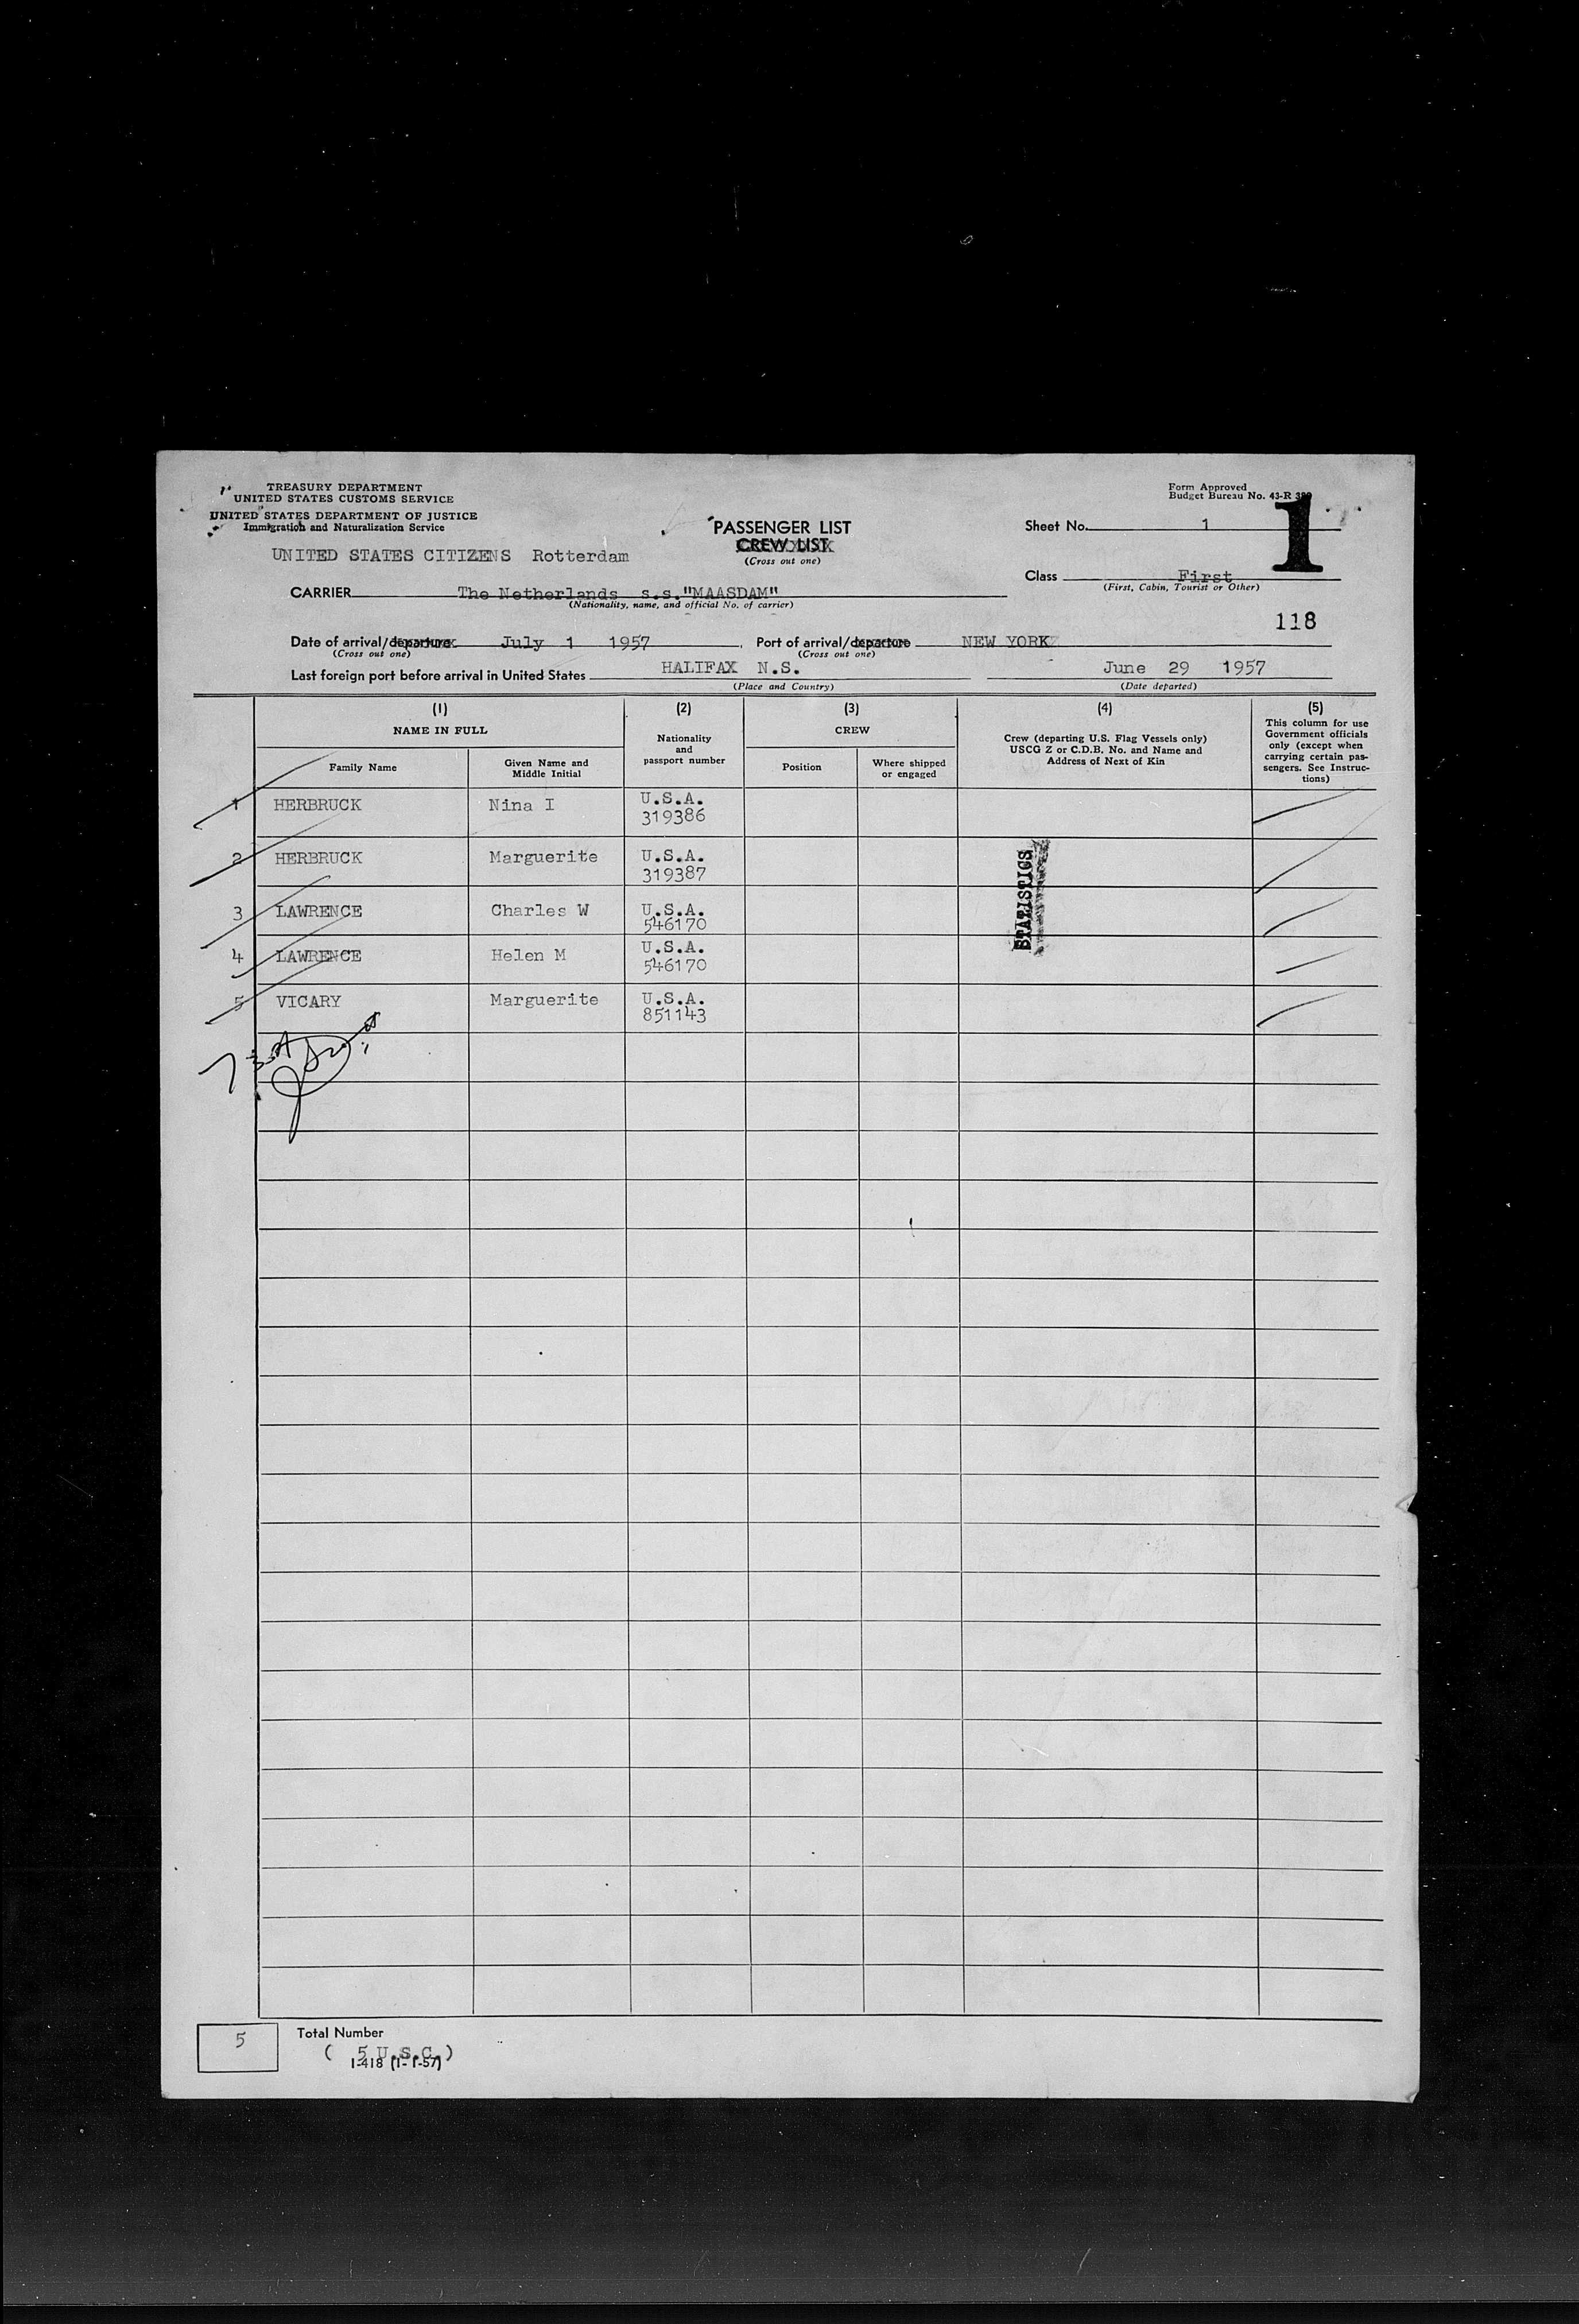 TREASURY DEPARTMENT
UNITED STATES CUSTOMS SERVICE
UNITED STATES DEPARTMENT OF JUSTICE
Immigration and Naturalization Service
UNITED STATES CITIZENS Rotterdam
PASSENGER LIST
CREW LIST
(Cross out one)
Form Approved
Budget Bureau No. 43-R
Sheet No. 1
1
Class First
(First, Cabin, Tourist or Other)
CARRIER The Netherlands s.s."MAASDAM"
(Nationality, name, and official No. of carrier)
118
Date of arrival/departure July 1 1957 , Port of arrival/departure NEW YORK
(Cross out one) (Cross out one)
Last foreign port before arrival in United States HALIFAX N.S. June 29 1957
(Place and Country) (Date departed)
(1) (2) (3) (4) (5)
NAME IN FULL
Family Name
Given Name and
Middle Initial
Nationality
and
passport number
CREW
Position
Where shipped
or engaged
Crew (departing U.S. Flag Vessels only)
USCG Z or C.D.B. No. and Name and
Address of Next of Kin
This column for use
Government officials
only (except when
carrying certain pas-
sengers. See Instruc-
tions)
1 HERBRUCK Nina I U.S.A.
319386
2 HERBRUCK Marguerite U.S.A.
319387
3 LAWRENCE Charles W U.S.A.
546170
4 LAWRENCE Helen M U.S.A.
546170
5 VICARY Marguerite U.S.A.
851143
STATISTICS
5
Total Number
( 5 U.S.C.)
I-418 (1-1-57)